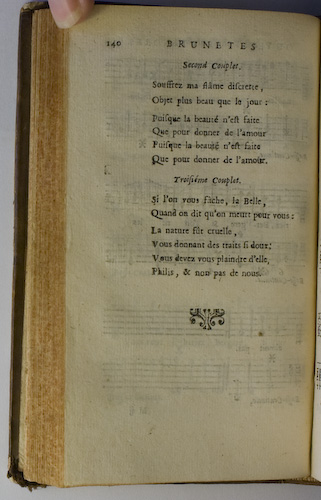 140 BRUNETES
Second Couplet.
Souffrez ma flâme discrette,
Objet plus beau que le jour:
Puisque la beauté n'est faite
Que pour donner de l'amour
Puisque la beauté n'est faite
Que pour donner de l'amour.
Troisiéme Couplet.
Si l'on vous fâche, la Belle,
Quand on dit qu'on meurt pour vous:
La nature fût cruelle,
Vous donnant des traits si doux:
Vous devez vous plaindre d'elle,
Philis, & non pas de nous.